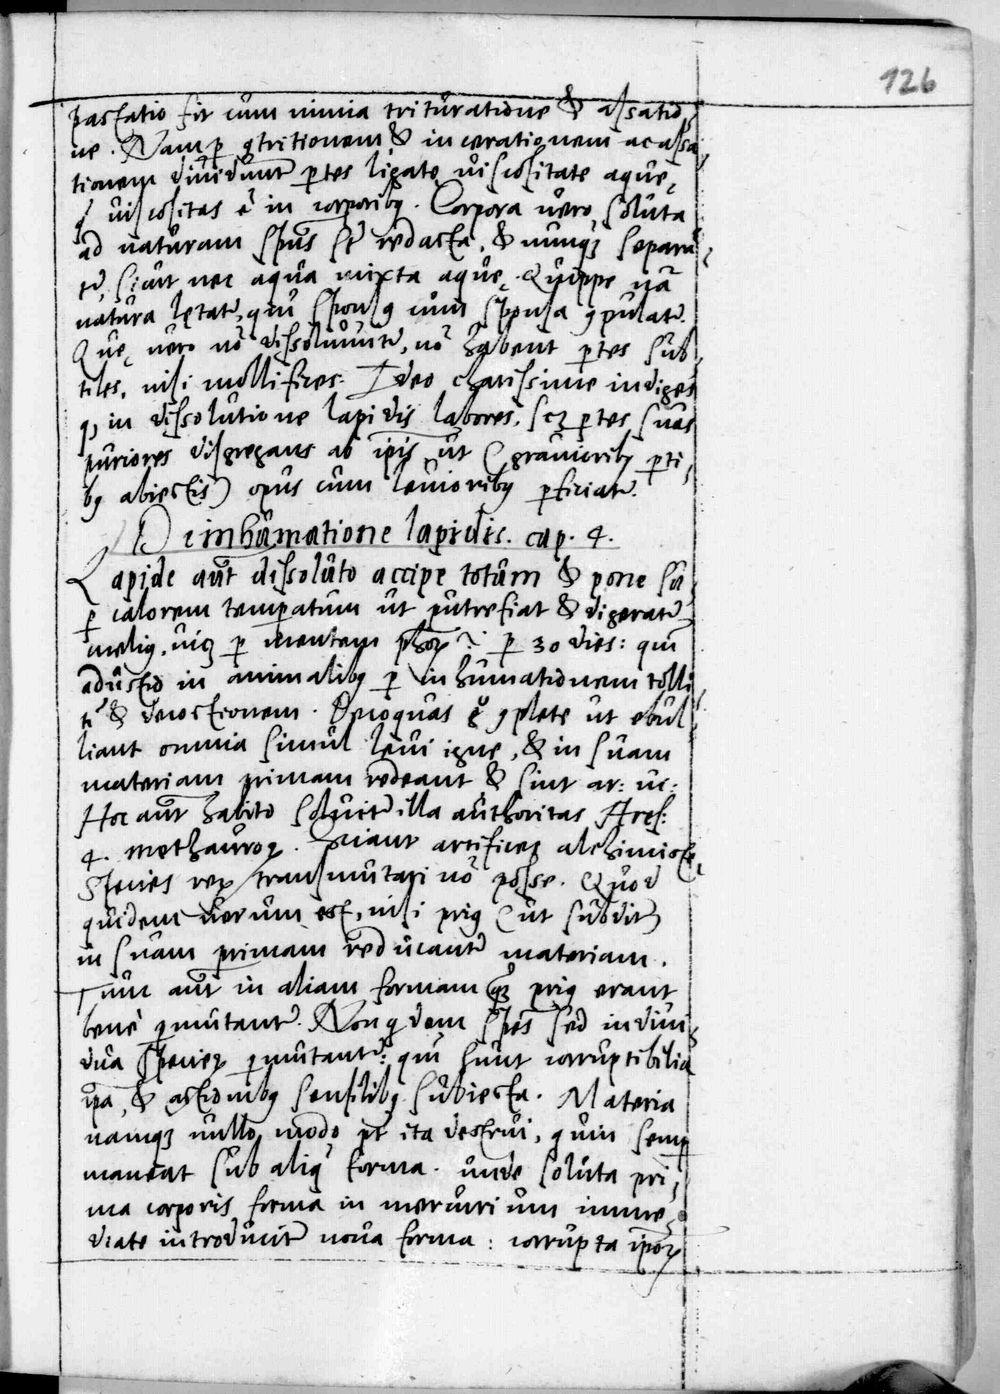 126
pactatio fit cum nimia trituratione & assatio,
ne. Nam p̱ 9tritionem & incerationem ac assa,
tionem diuidunt̃ p̱tes ligatę uiscositate aquę,
q̃ uiscositas ẽ in corporibꝫ. Corpora uero soluta
ad naturam sp̃us st̃ redacta, & nunqꝫ separã
tʳ, sicut nec aqua mixta aquę. Quippe nã
natura lętatʳ, qñ sponsꝰ cum sponsa 9pulatʳ.
Quę uero nõ dissoluuntʳ, nõ habent p̱tes sub
tiles, nisi mollifices. Ideo clarissime indiges
qꝫ in dissolutione lapidis labores, scꝫ p̱tes suas
puriores disgregans ab ip̃is ut (grauioribꝫ p̱ti,
bꝫ abiectis) opus cum leuioribꝫ p̱ficiatʳ.
De inhumatione lapidis. cap. 4.
Lapide aũt dissoluto accipe totum & pone su,
p̱ calorem temp̱atum ut putrefiat & digeratʳ
meliꝰ, p̱ mentem ph̃oꝝ p̱ 30 dies: qm̃
adustio in animalibꝫ p̱ inhumationem tolli
tʳ & decoctionem. Decoquas g̊ 9plete ut ebul
liant omnia simul leui igne, & in suam
materiam primam redeant & sint ar: ui:
Hoc aũt habito soluitʳ illa authoritas Ares:
4. methauroꝝ. Sciant artifices alchimiæ
species reꝝ transmutari nõ posse. Quod
quidem uerum est, nisi priꝰ (ut subditʳ)
in suam primam reducantʳ materiam.
Tunc aũt in aliam formam qꝫ̃ priꝰ erant
bene p̱mutantʳ. Non qdem sp̃es sed indiui,
dua specieꝝ p̱mutantʳ: qm̃ sunt corruptibilia
ip̃a, & actionibꝫ sensilibꝫ subiecta. Materia
namqꝫ nullo modo p̃t ita destrui, quin semp̱
maneat sub aliq̃ forma. unde soluta pri,
ma corporis forma in mercurium imme,
diate introducitʳ noua forma: corrupta ip̃oꝝ